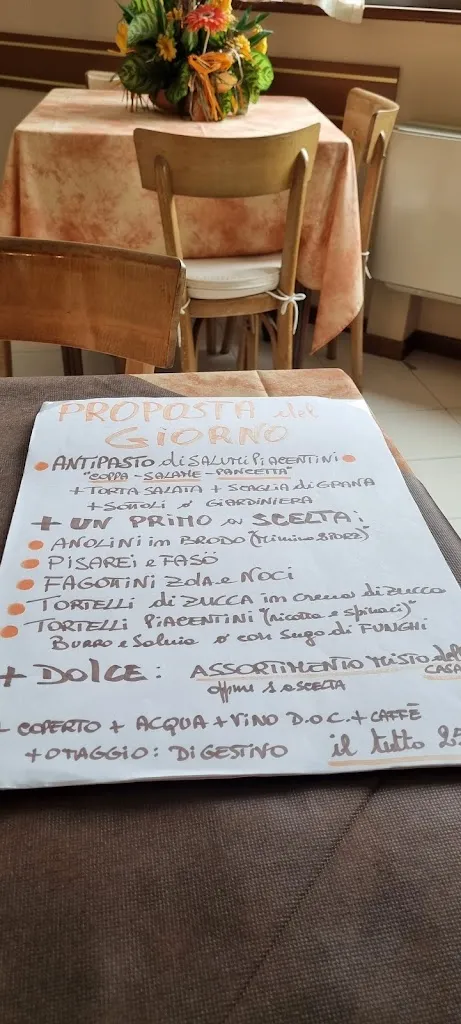 PROPOSTA del
GIORNO
• ANTIPASTO di SALUMI PIACENTINI •
"COPPA - SALAME - PANCETTA"
+ TORTA SALATA + SCAGLIA di GRANA
+ SGNOLI o GIARDINIERA
+ UN PRIMO a SCELTA:
• ANOLINI in BRODO ("Minimo 2 PORZ")
• PISAREI e FASÖ
• FAGOTTINI ZOLA e NOCI
• TORTELLI di ZUCCA in crema di ZUCCA
• TORTELLI PIACENTINI "(ricotta e spinaci)"
BURRO e Salvia o con Sugo di FUNGHI
+ DOLCE: ASSORTIMENTO MISTO della CASA
oppure 1 a SCELTA
+ COPERTO + ACQUA + VINO D.O.C. + CAFFÈ
+ OMAGGIO: DIGESTIVO il tutto 25